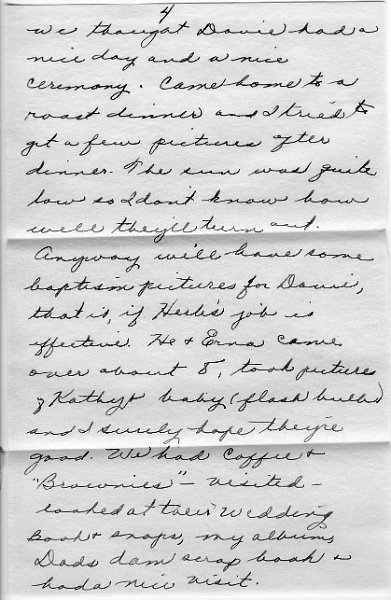 4
we thought Davie had a
nice day and a nice
ceremony. Came home to a
roast dinner and I tried to
get a few pictures after
dinner. The sun was quite
low so I don't know how
well they'll turn out.
Anyway we'll have some
baptism pictures for Davie,
that is, if Herb's job is
effective. He & Erna came
over about 8, took pictures
of Kathy & baby (flash bulbs)
and I surely hope they're
good. We had Coffee &
"Brownies" - visited -
looked at their Wedding
Book & snaps, my album,
Dads dam scrap book &
had a nice visit.